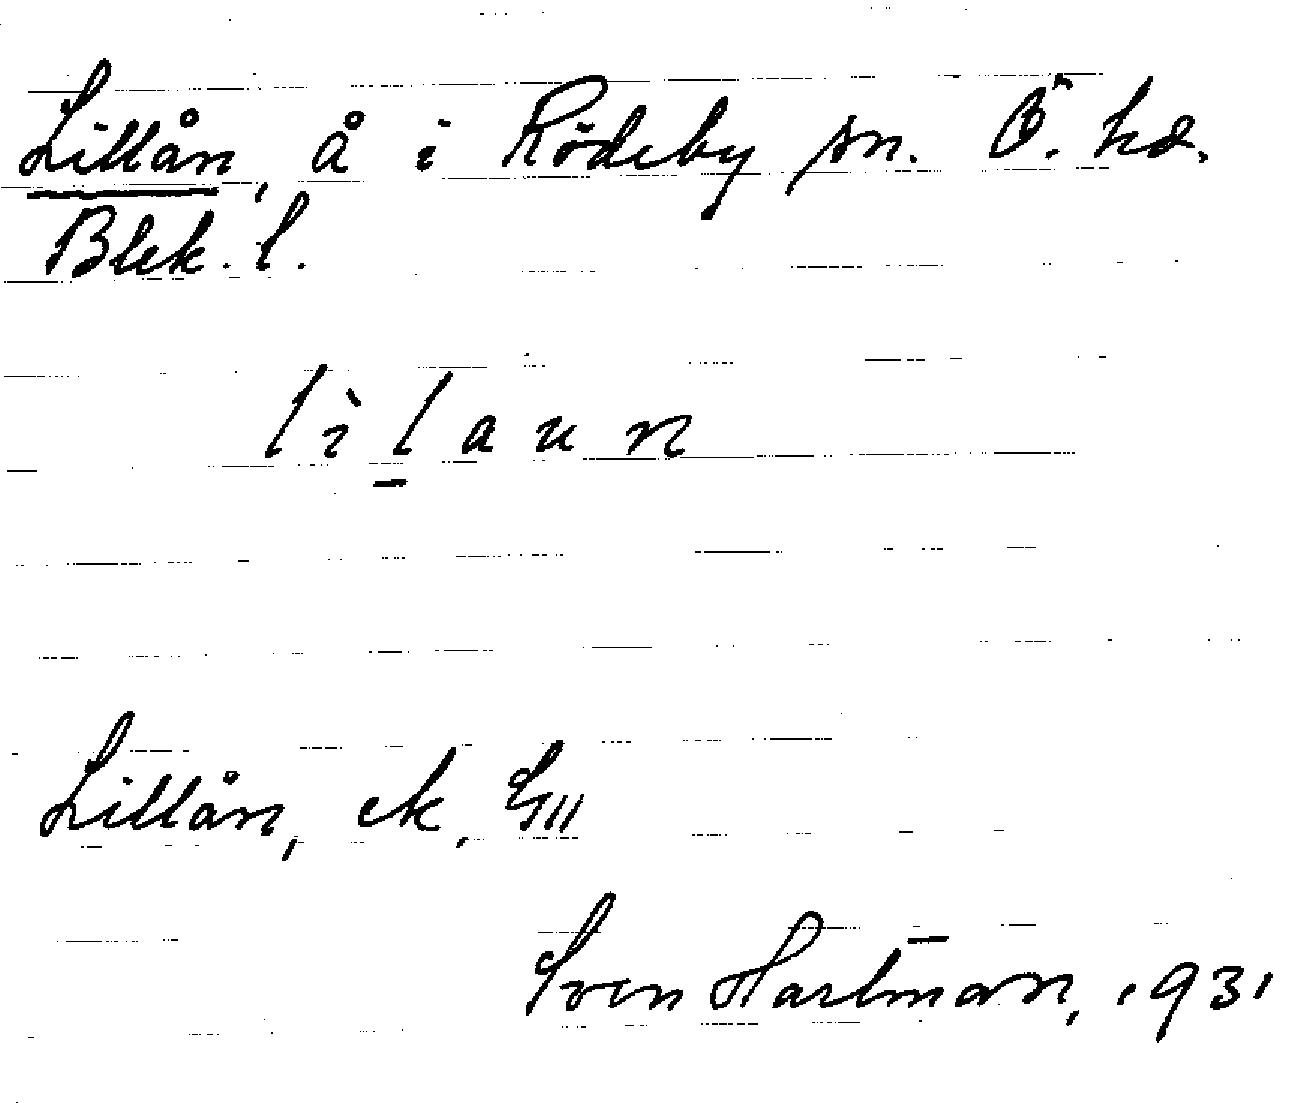 Lillån, å i Rödeby sn. Ö. hd.
Blek. l.
lìlaun
Lillån, ek, GII
Sven Hartman, 1931